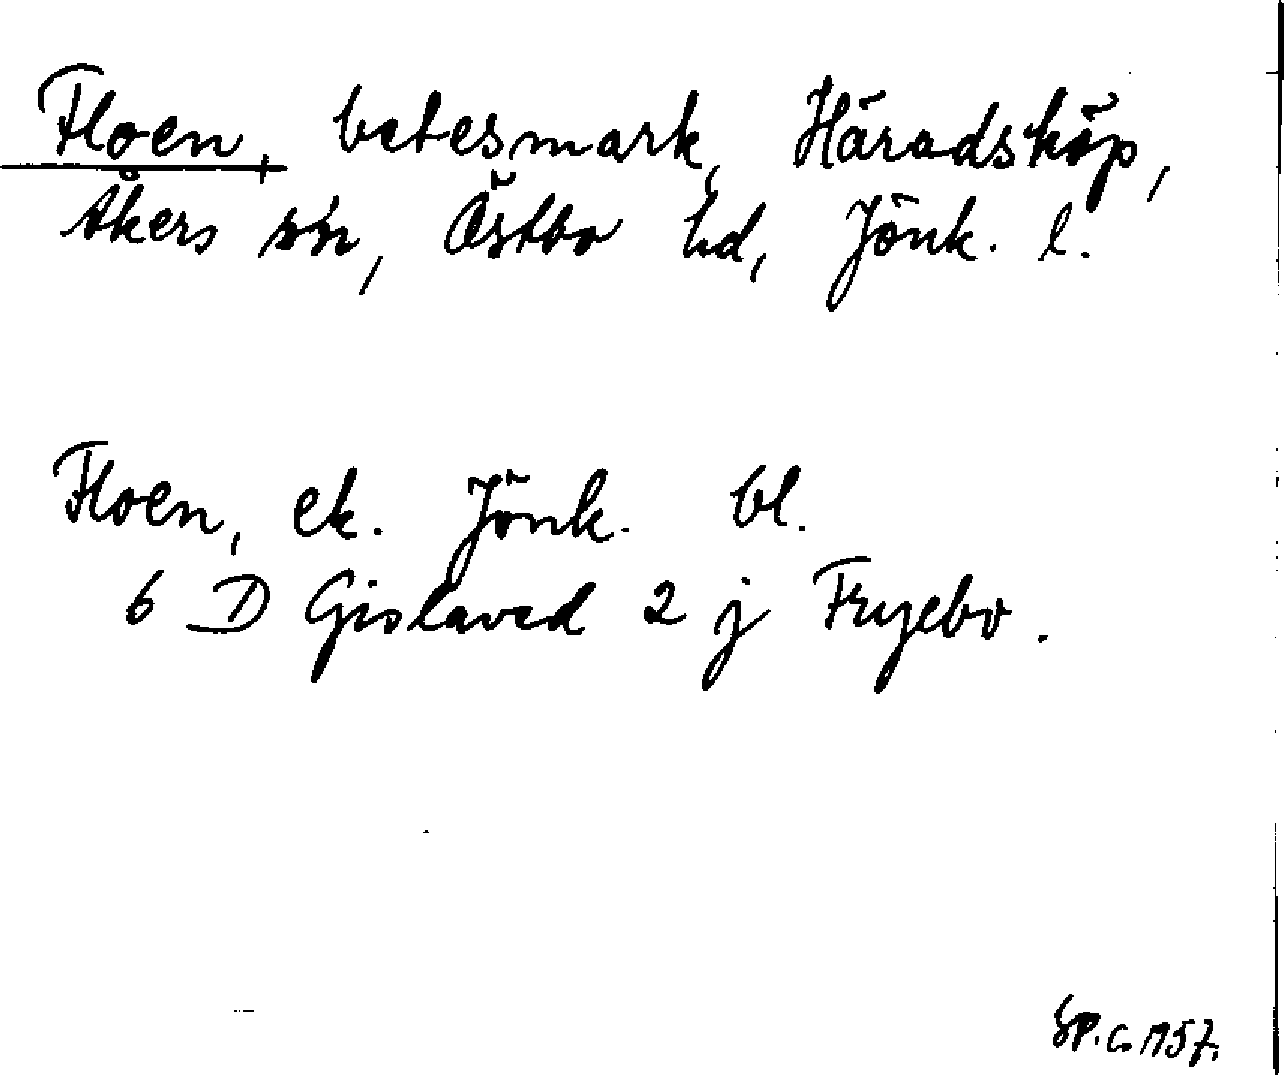 Floen, betesmark, Häradsköp,
Åkers sn, Östbo hd, Jönk. l.
Floen, ek. Jönk. bl.
6 D Gislaved 2 j Fryebo.
1957.